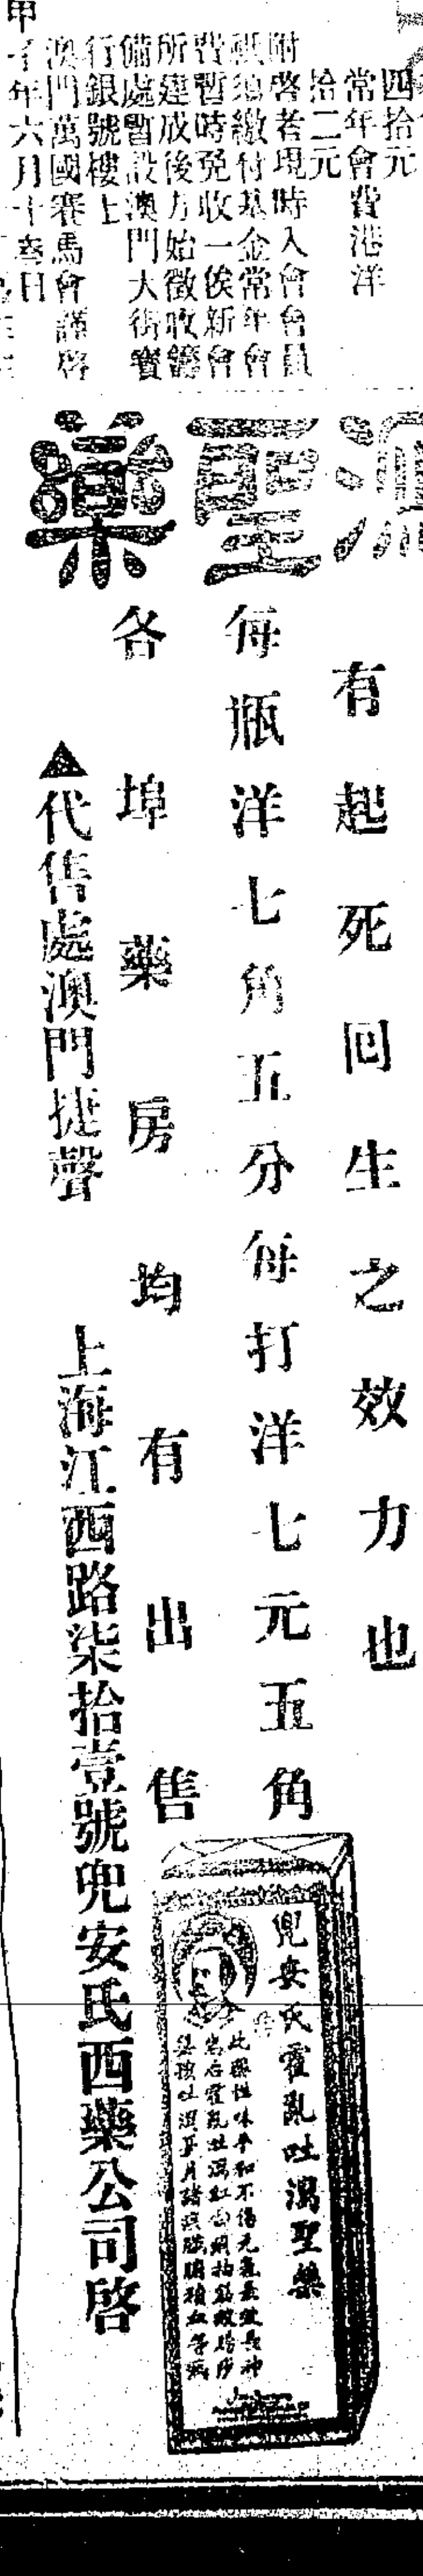 四拾元
常年會費港洋
拾二元
附啓者現時入會會員
祇須繳付基金常年會
費暫時免收一俟新會
所建成後方始徵收籌
備處暫設澳門大街寶
行銀號樓上
澳門萬國賽馬會謹啓
甲子年六月十壹日
瀉聖藥
有起死回生之效力也
每瓶洋七角五分每打洋七元五角
各埠藥房均有出售
▲代售處澳門捷聲
上海江西路柒拾壹號兜安氏西藥公司啓
兜安氏霍亂吐瀉聖藥
此藥性味平和不傷元氣